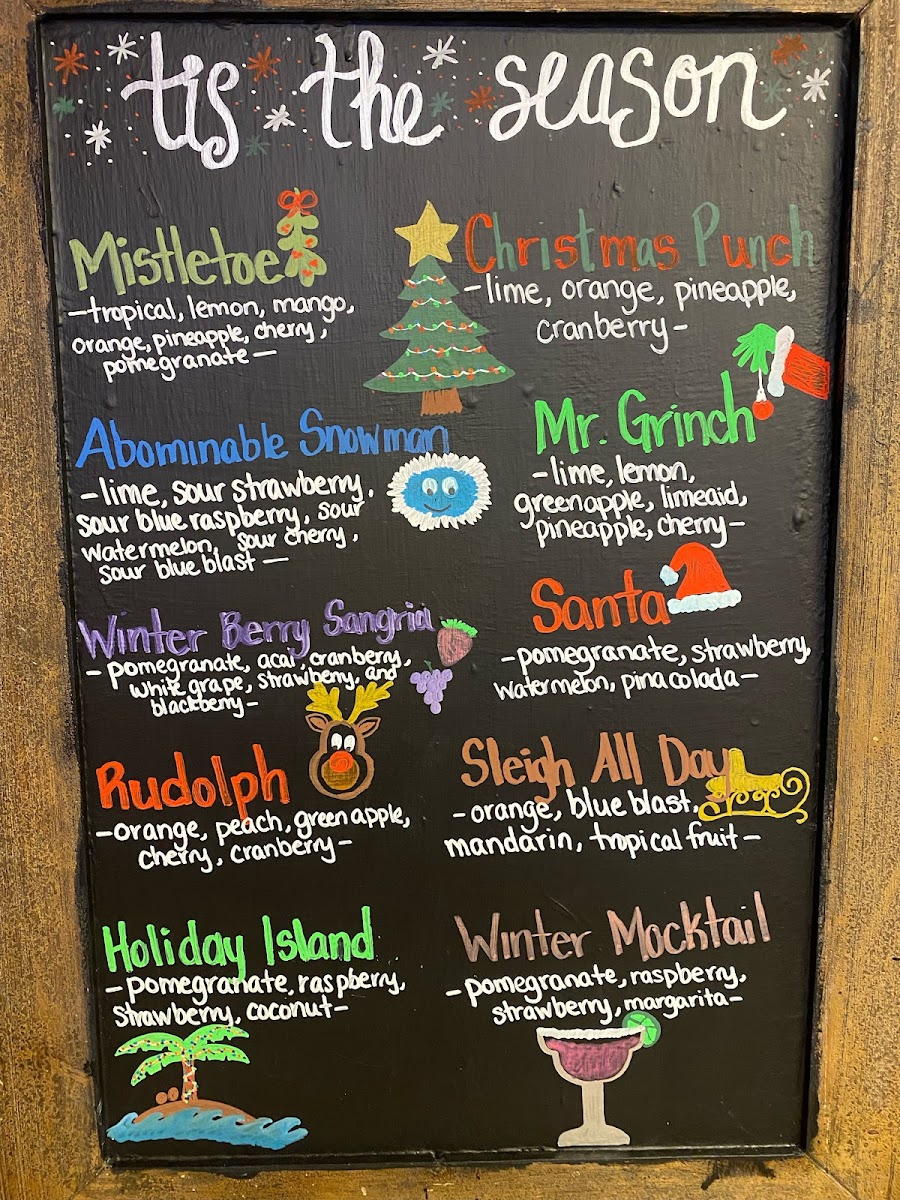 tis the season
Mistletoe
-tropical, lemon, mango,
orange, pineapple, cherry,
pomegranate-
Christmas Punch
-lime, orange, pineapple,
cranberry-
Abominable Snowman
-lime, sour strawberry,
sour blue raspberry, sour
watermelon, sour cherry,
sour blue blast-
Mr. Grinch
-lime, lemon,
green apple, limeaid,
pineapple, cherry-
Winter Berry Sangria
-pomegranate, acai, cranberry,
white grape, strawberry, and
blackberry-
Santa
-pomegranate, strawberry,
watermelon, pina colada-
Rudolph
-orange, peach, green apple,
cherry, cranberry-
Sleigh All Day
-orange, blue blast,
mandarin, tropical fruit-
Holiday Island
-pomegranate, raspberry,
strawberry, coconut-
Winter Mocktail
-pomegranate, raspberry,
strawberry, margarita-